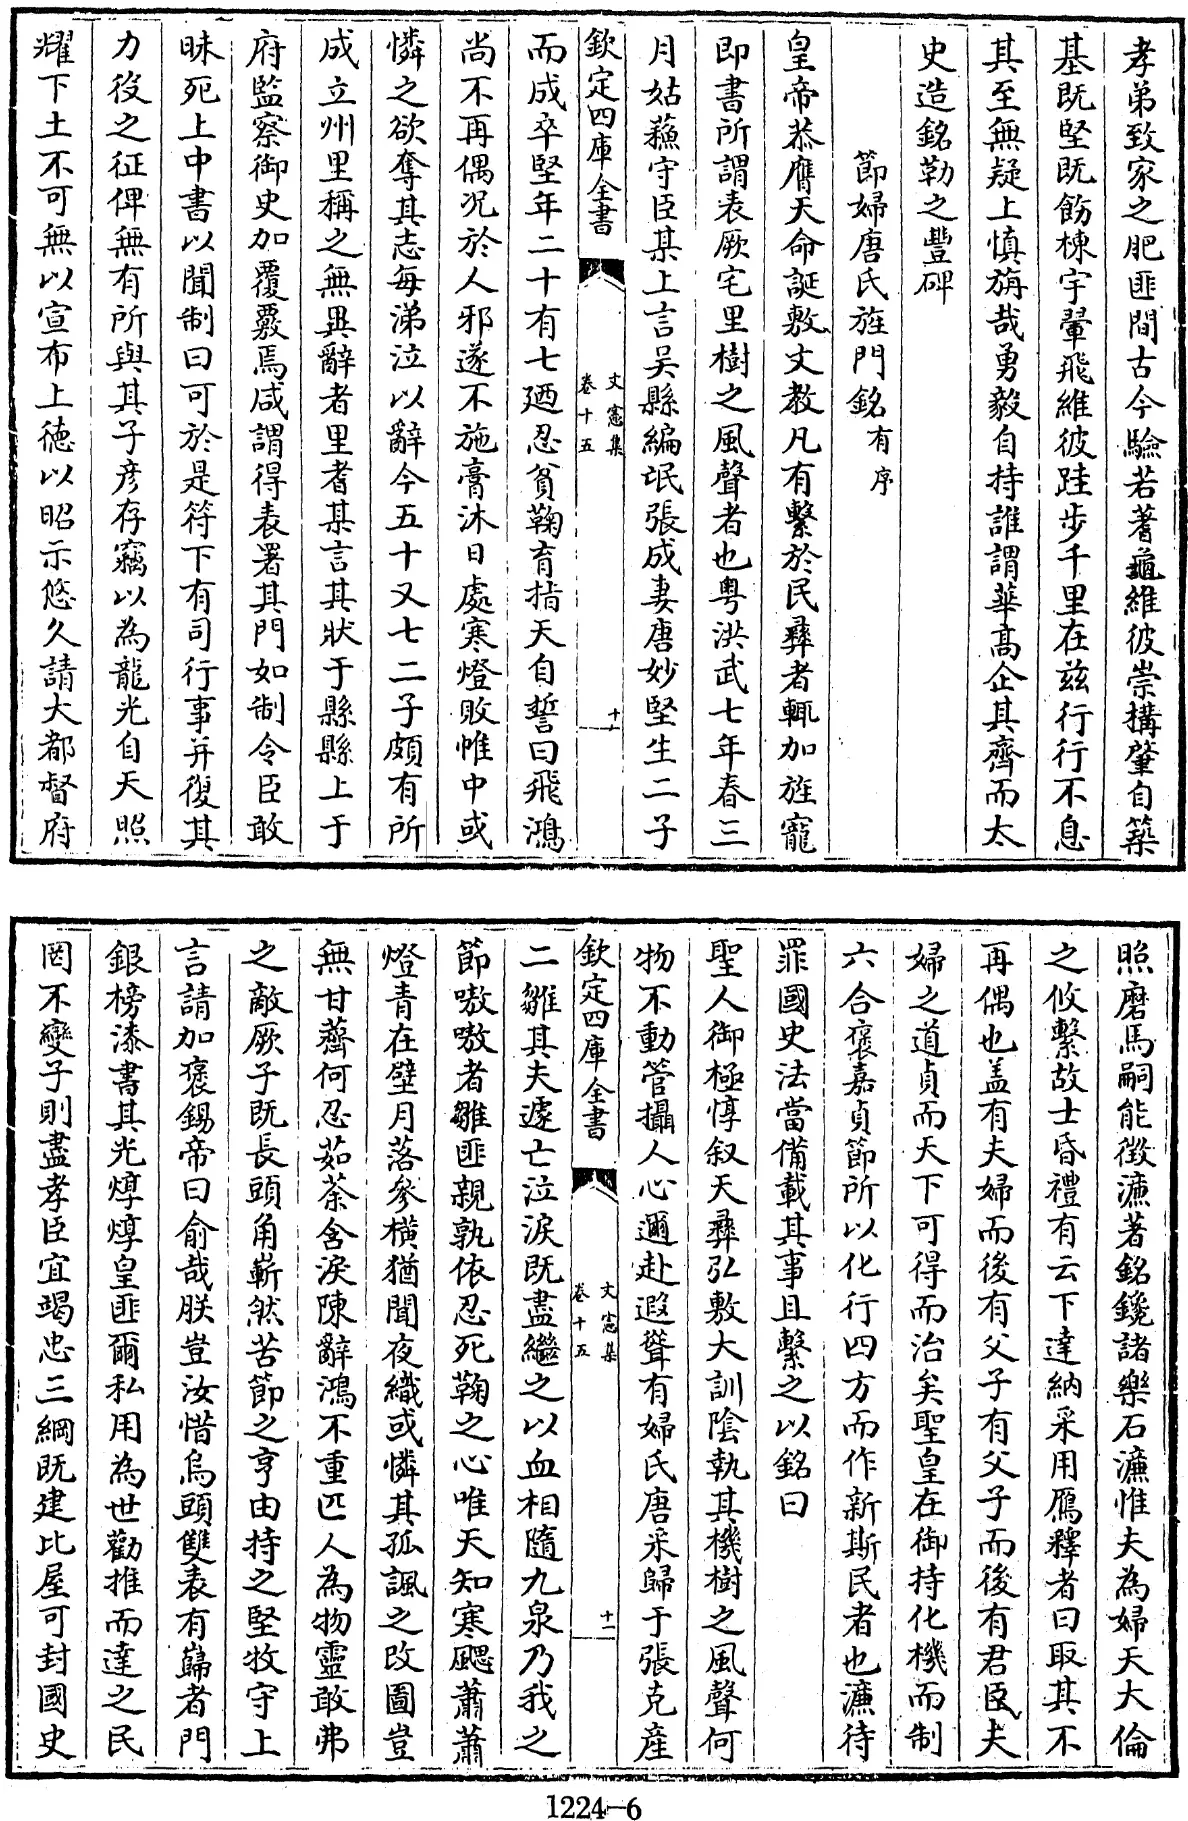 孝弟致家之肥匪間古今驗若蓍龜維彼崇搆肇自築
基既堅既飭棟宇翬飛維彼跬步千里在兹行行不息
其至無疑上慎旃哉勇毅自持誰謂華髙企其齊而太
史造銘勒之豐碑
節婦唐氏旌門銘有序
皇帝恭膺天命誕敷文教凡有繫於民彞者輒加旌寵
即書所謂表厥宅里樹之風聲者也粤洪武七年春三
月姑蘓守臣某上言吴縣編氓張成妻唐妙堅生二子
欽定四庫全書
文憲集
卷十五
十
而成卒堅年二十有七廼忍貧鞠育指天自誓曰飛鴻
尚不再偶况於人邪遂不施膏沐日處寒燈敗帷中或
憐之欲奪其志每涕泣以辭今五十又七二子頗有所
成立州里稱之無異辭者里耆某言其狀于縣縣上于
府監察御史加覆覈焉咸謂得表署其門如制令臣敢
昧死上中書以聞制曰可於是符下有司行事并復其
力役之征俾無有所與其子彦存竊以為龍光自天照
耀下土不可無以宣布上徳以昭示悠久請大都督府
照磨馬嗣能徴濂著銘鑱諸樂石濂惟夫為婦天大倫
之攸繫故士昏禮有云下達納采用鴈釋者曰取其不
再偶也盖有夫婦而後有父子有父子而後有君臣夫
婦之道貞而天下可得而治矣聖皇在御持化機而制
六合褒嘉貞節所以化行四方而作新斯民者也濂待
罪國史法當備載其事且繫之以銘曰
聖人御極惇叙天彞弘敷大訓陰執其機樹之風聲何
物不動管攝人心邇赴遐聳有婦氏唐采歸于張克産
欽定四庫全書
文憲集
卷十五
十一
二雛其夫遽亡泣淚既盡繼之以血相隨九泉乃我之
節嗷嗷者雛匪親孰依忍死鞠之心唯天知寒颸蕭蕭
燈青在壁月落參横猶聞夜織或憐其孤諷之改圖豈
無甘薺何忍茹荼含淚陳辭鴻不重匹人為物靈敢弗
之敵厥子既長頭角嶄然苦節之亨由持之堅牧守上
言請加褒錫帝曰俞哉朕豈汝惜烏頭雙表有巋者門
銀榜漆書其光焞焞皇匪爾私用為世勸推而達之民
罔不變子則盡孝臣宜竭忠三綱既建比屋可封國史
1224-6